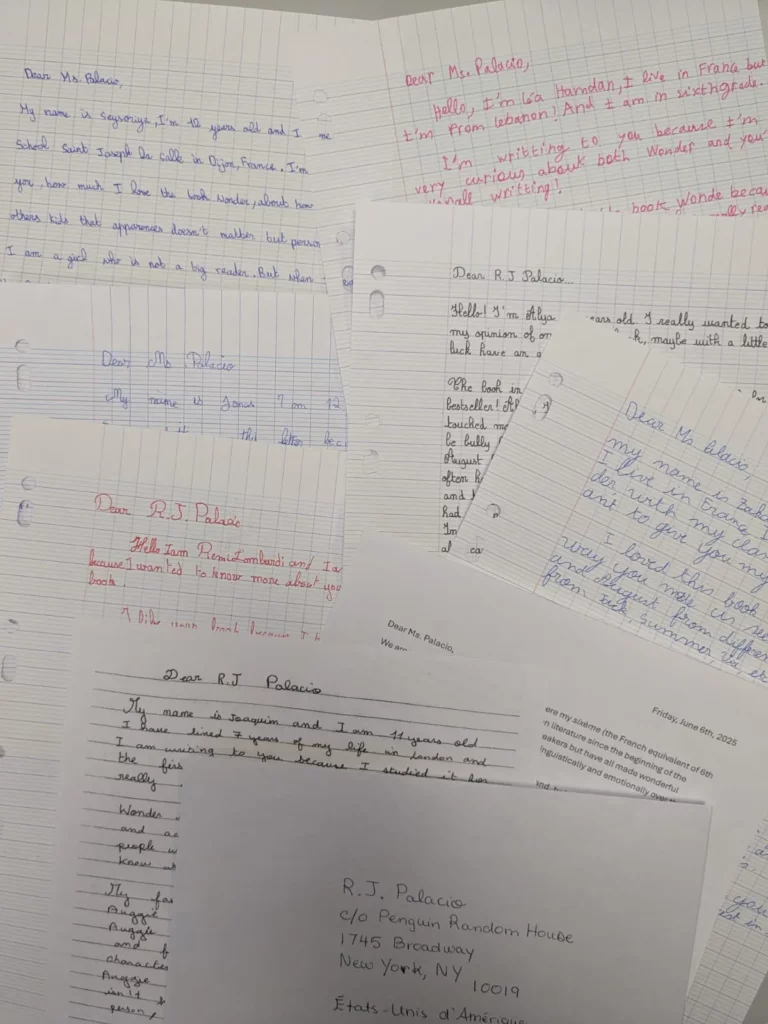 Dear Ms. Palacio,
My name is Seysoniya, I'm 12 years old and I
School Saint Joseph La Salle in Dijon, France. I'm
you, how much I love the book Wonder, about how
others kids that apparences doesn't matter but person
I am a girl who is not a big reader. But when
Dear Ms. Palacio,
Hello, I'm Léa Hamdan, I live in France but
I'm from Lebanon! And I am in sixthgrade.
I'm writting to you because I'm
very curious about both Wonder and you
writting!
book Wonde becau
Dear R.J Palacio...
Hello! I'm Alya ears old. I really wanted to
my opinion of maybe with a little
luck have an
The book in
bestseller!
touched
be bully
August
often
and
had
Dear Ms Palacio
My name is Jonas I'm 12
this letter bec
Dear Ms Palacio,
my name is
I live in France
der with my clas
ant to give you my
I loved this book
way you make us see
and August from differen
from Jack, Summer Via
Dear R.J. Palacio
Hello I am Remi Lombardi and I
because I wanted to know more about you
book.
Dear Ms. Palacio,
We
Friday, June 6th, 2025
ere my sixème (the French equivalent of 6th
n literature since the beginning of the
eakers but have all made wonderful
inguistically and emotionally over
Dear R.J Palacio
My name is Joaquim and I am 11 years old
I have lived 7 years of my life in London and
I am writing to you because I studied it
the firs
really
Wonder
and
people
know
My fav
Auggie
Auggie
and
character
Auggie
isn't
person,
R.J. Palacio
c/o Penguin Random House
1745 Broadway
New York, NY 10019
États-Unis d'Amérique